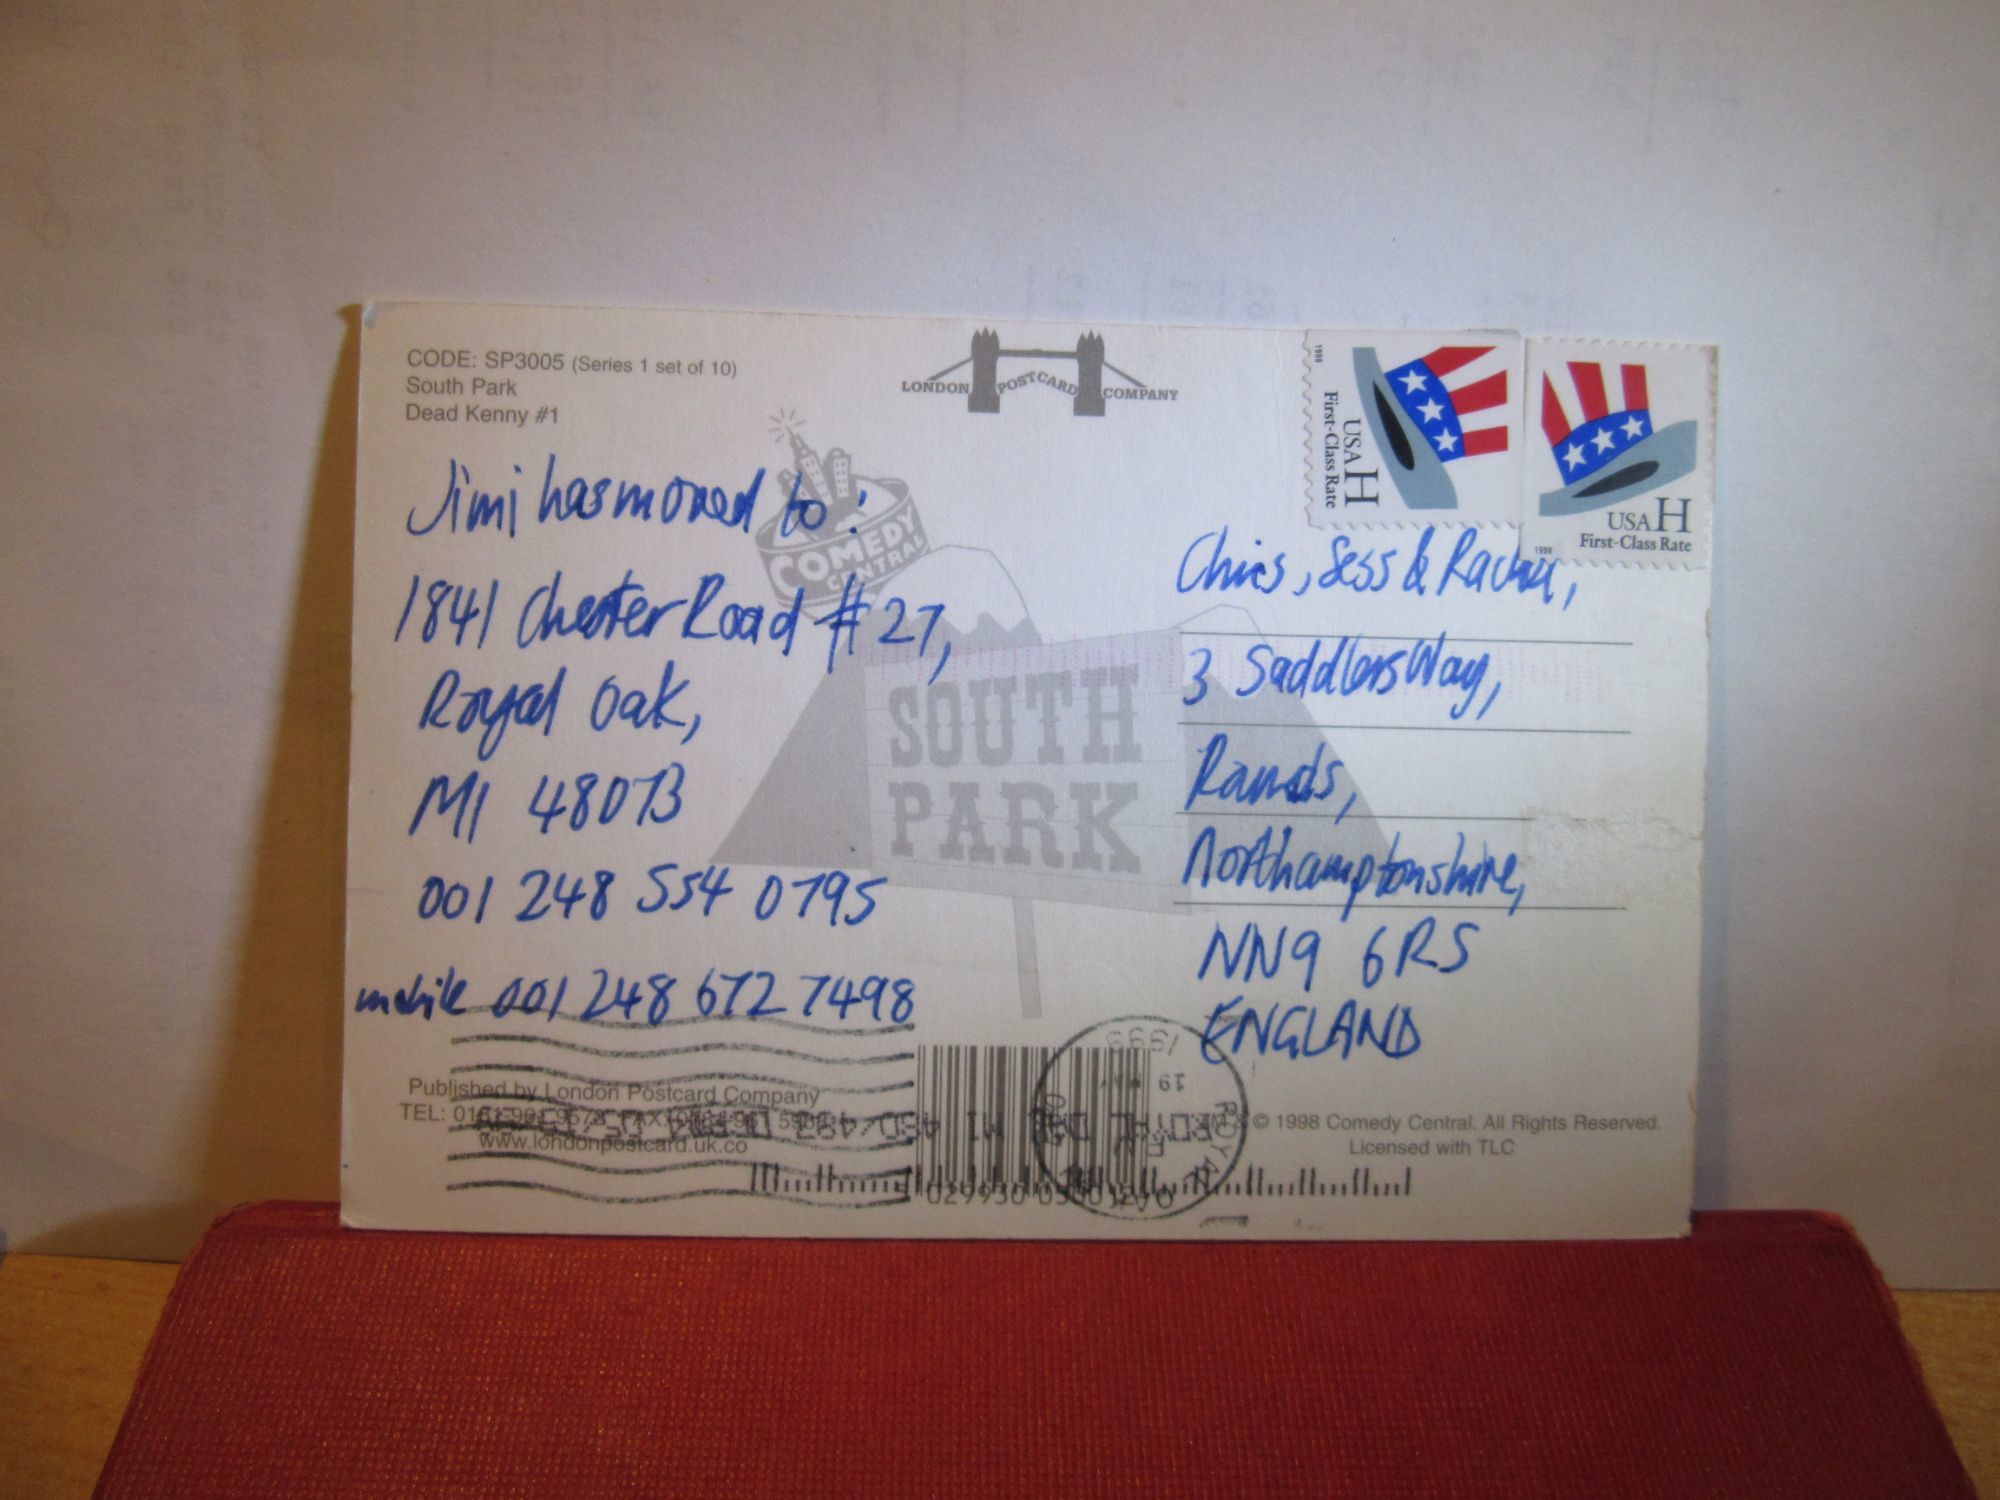 CODE: SP3005 (Series 1 set of 10)
South Park
Dead Kenny #1
LONDON POSTCARD COMPANY
COMEDY
CENTRAL
SOUTH
PARK
Jimi has moved to:
1841 Chester Road #27,
Royal Oak,
MI 48073
001 248 554 0795
mobile 001 248 672 7498
1998
USA H
First-Class Rate
USA H
First-Class Rate
1998
Chris, Jess & Rachel,
3 Saddlers Way,
Raunds,
Northamptonshire,
NN9 6RS
ENGLAND
Published by London Postcard Company
TEL: 0181
www.londonpostcard.uk.co
© 1998 Comedy Central. All Rights Reserved.
Licensed with TLC
ROYAL OAK MI 480/483
ROYAL OAK
19 MAY
1999